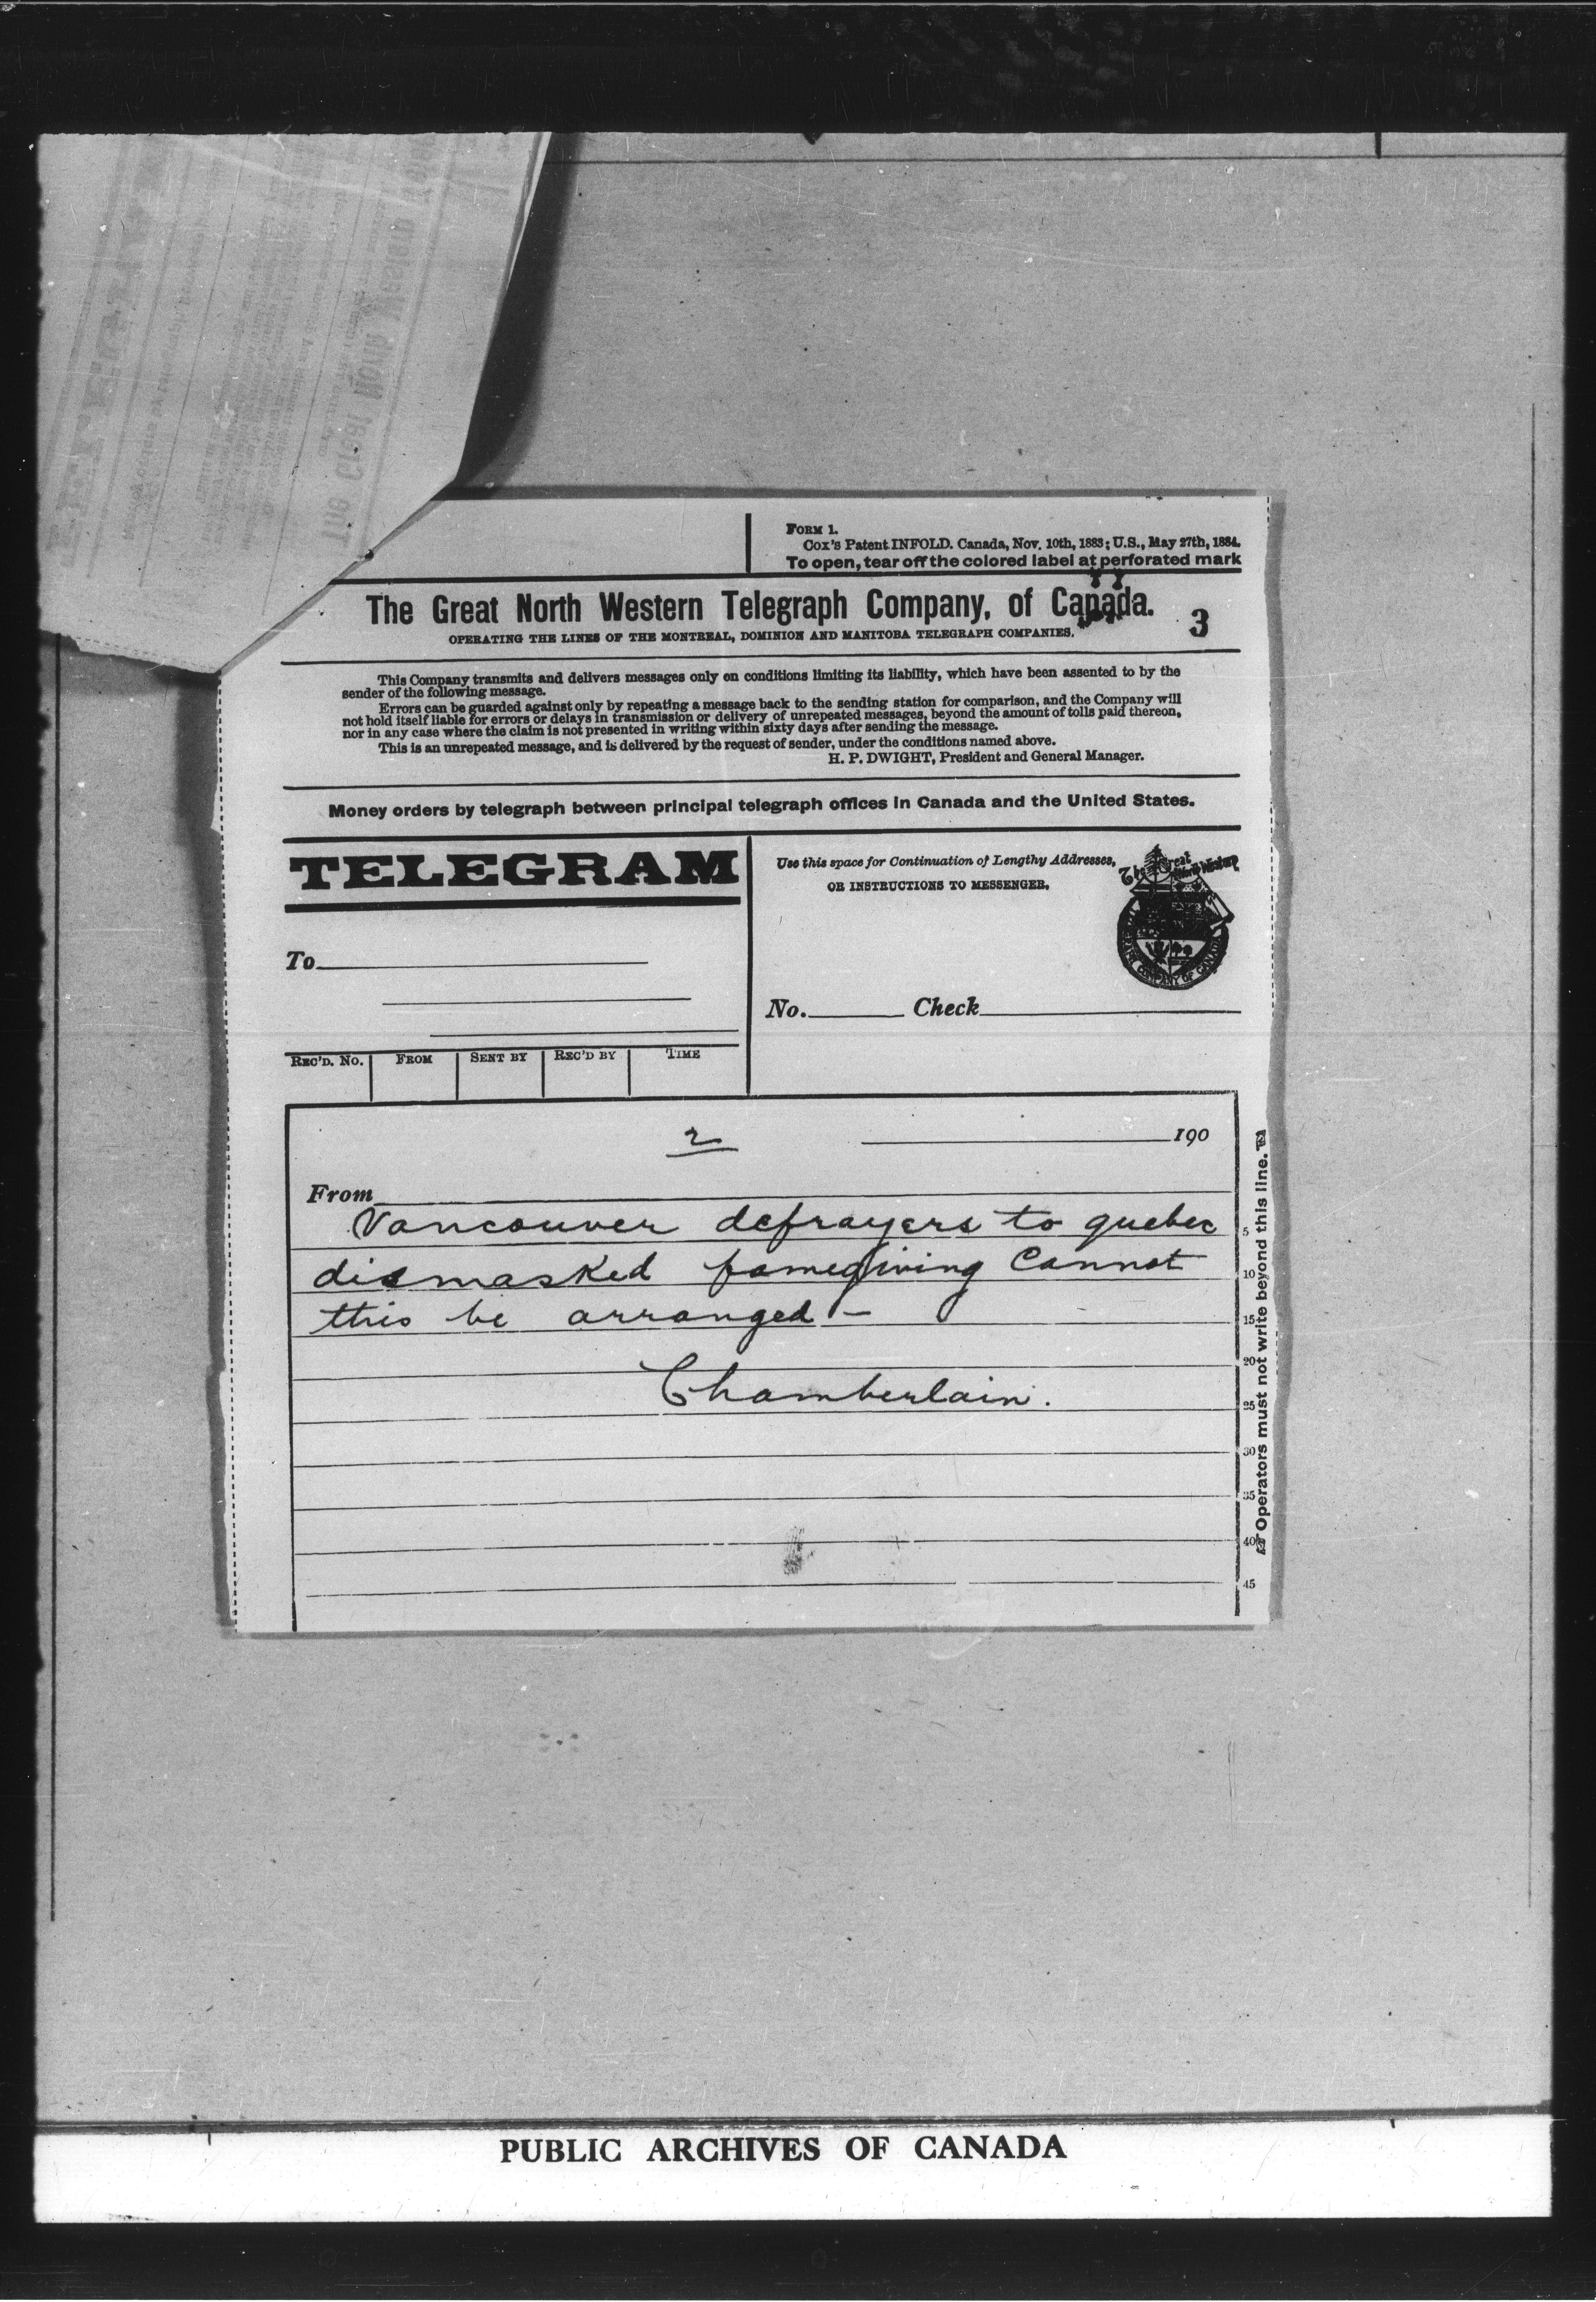 FORM 1.
Cox's Patent INFOLD. Canada, Nov. 10th, 1883; U.S., May 27th, 1884.
To open, tear off the colored label at perforated mark
The Great North Western Telegraph Company, of Canada.
3
OPERATING THE LINES OF THE MONTREAL, DOMINION AND MANITOBA TELEGRAPH COMPANIES.
This Company transmits and delivers messages only on conditions limiting its liability, which have been assented to by the
sender of the following message.
Errors can be guarded against only by repeating a message back to the sending station for comparison, and the Company will
not hold itself liable for errors or delays in transmission or delivery of unrepeated messages, beyond the amount of tolls paid thereon,
nor in any case where the claim is not presented in writing within sixty days after sending the message.
This is an unrepeated message, and is delivered by the request of sender, under the conditions named above.
H. P. DWIGHT, President and General Manager.
Money orders by telegraph between principal telegraph offices in Canada and the United States.
TELEGRAM
Use this space for Continuation of Lengthy Addresses,
OR INSTRUCTIONS TO MESSENGER.
The Great North Western
To
No. Check
REC'D. NO. FROM SENT BY REC'D BY TIME
2
190
From
Vancouver defrayers to quebec
dismasked famegiving Cannot
this be arranged —
Chamberlain.
5
10
15
20
25
30
35
40
45
Operators must not write beyond this line.
PUBLIC ARCHIVES OF CANADA